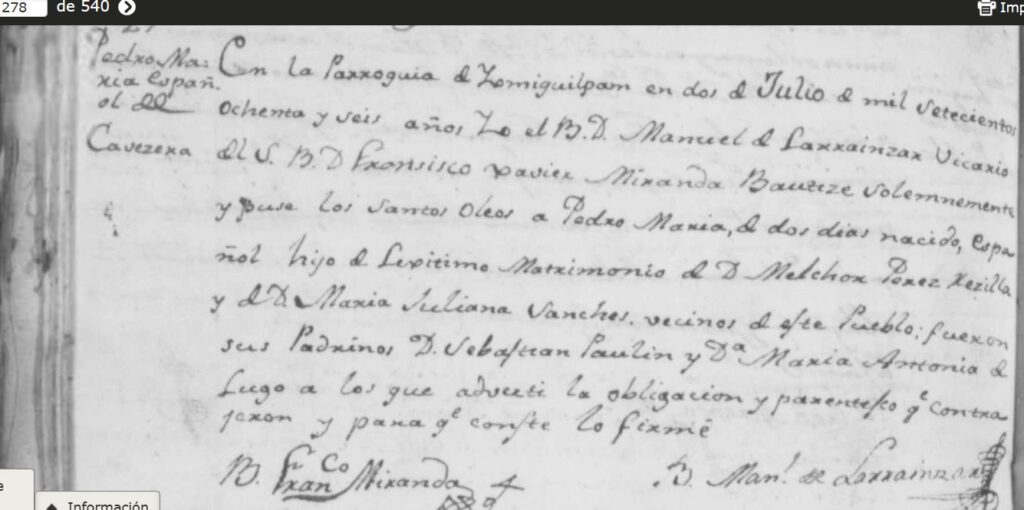 278 de 540 Imp
Pedro Ma=
ria Españ.
ol de
Cavezera
En la Parroquia de Zomiquilpam en dos de Julio de mil setecientos
ochenta y seis años Yo el B.D. Manuel de Larrainzar Vicario
del S. B. D Fransisco xavier Miranda Bautize solemnemente
y puse los santos oleos a Pedro Maria, de dos dias nacido, Espa
ñol hijo de Lexitimo Matrimonio de D Melchor Perez
y de D. Maria Juliana Sanches, vecinos de este Pueblo; fueron
sus Padrinos D. Sebastian Paulin y Dª Maria Antonia de
Lugo a los que adverti la obligacion y parentesco q̃ contra
jeron y para q̃ conste lo firmé
B. Franco Miranda
B. Manl. de Larrainzar
Información